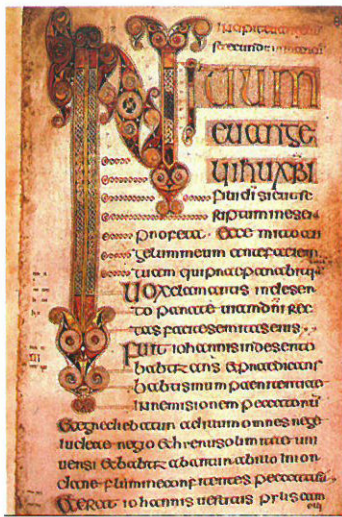 INITIUM
euange
lii ihu xpi
fili di sicut sc
riptum in esaia
profeta · Ecce mitto an
gelum meum ante faciem
tuam qui praeparabit
Uox clamantis in deser
to parate uiam dni rec
tas facite semitas eius
Fuit iohannis in deserto
babtizans et praedicans
babtismum paenitentiae
in remissionem peccatorum
ad illum omnes
iudeae regio et hierusolimitae uni
uersi et babtizabantur ab illo in ior
dane flumine confitentes peccata
Et erat iohannis uestitus pilis cam